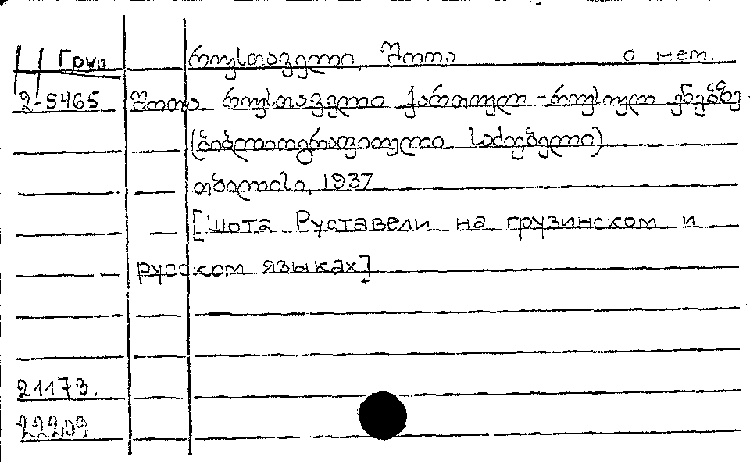 Груз რუსთაველი, შოთა о нем.
2-5465 შოთა რუსთაველი ქართულ-რუსულ ენებზე
(ბიბლიოგრაფიული საძიებელი)
თბილისი, 1937
[Шота Руставели на грузинском и
русском языках]
21173.
22209